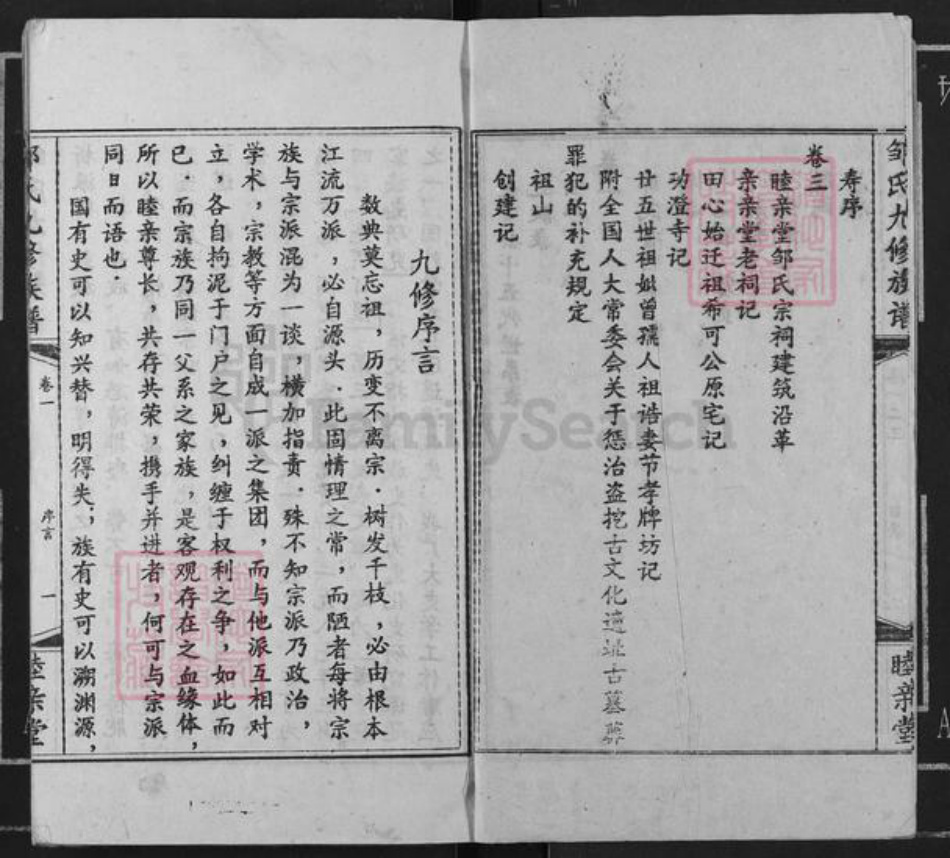 邹氏九修族谱
睦亲堂
寿序
卷三
睦亲堂邹氏宗祠建筑沿革
亲亲堂老祠记
田心始迁祖希可公原宅记
功澄寺记
廿五世祖妣曾孺人祖诰妻节孝牌坊记
附全国人大常委会关于惩治盗挖古文化遗址古墓葬
罪犯的补充规定
祖山
创建记
九修序言
数典莫忘祖，历变不离宗．树发千枝，必由根本
江流万派，必自源头．此固情理之常，而陋者每将宗
族与宗派混为一谈，横加指责．殊不知宗派乃政治，
学术，宗教等方面自成一派之集团，而与他派互相对
立，各自拘泥于门户之见，纠缠于权利之争，如此而
已．而宗族乃同一父系之家族，是客观存在之血缘体，
所以睦亲尊长，共存共荣，携手并进者，何可与宗派
同日而语也．
国有史可以知兴替，明得失；族有史可以溯渊源，
邹氏九修族谱
卷一
序言
一
睦亲堂
FamilySearch